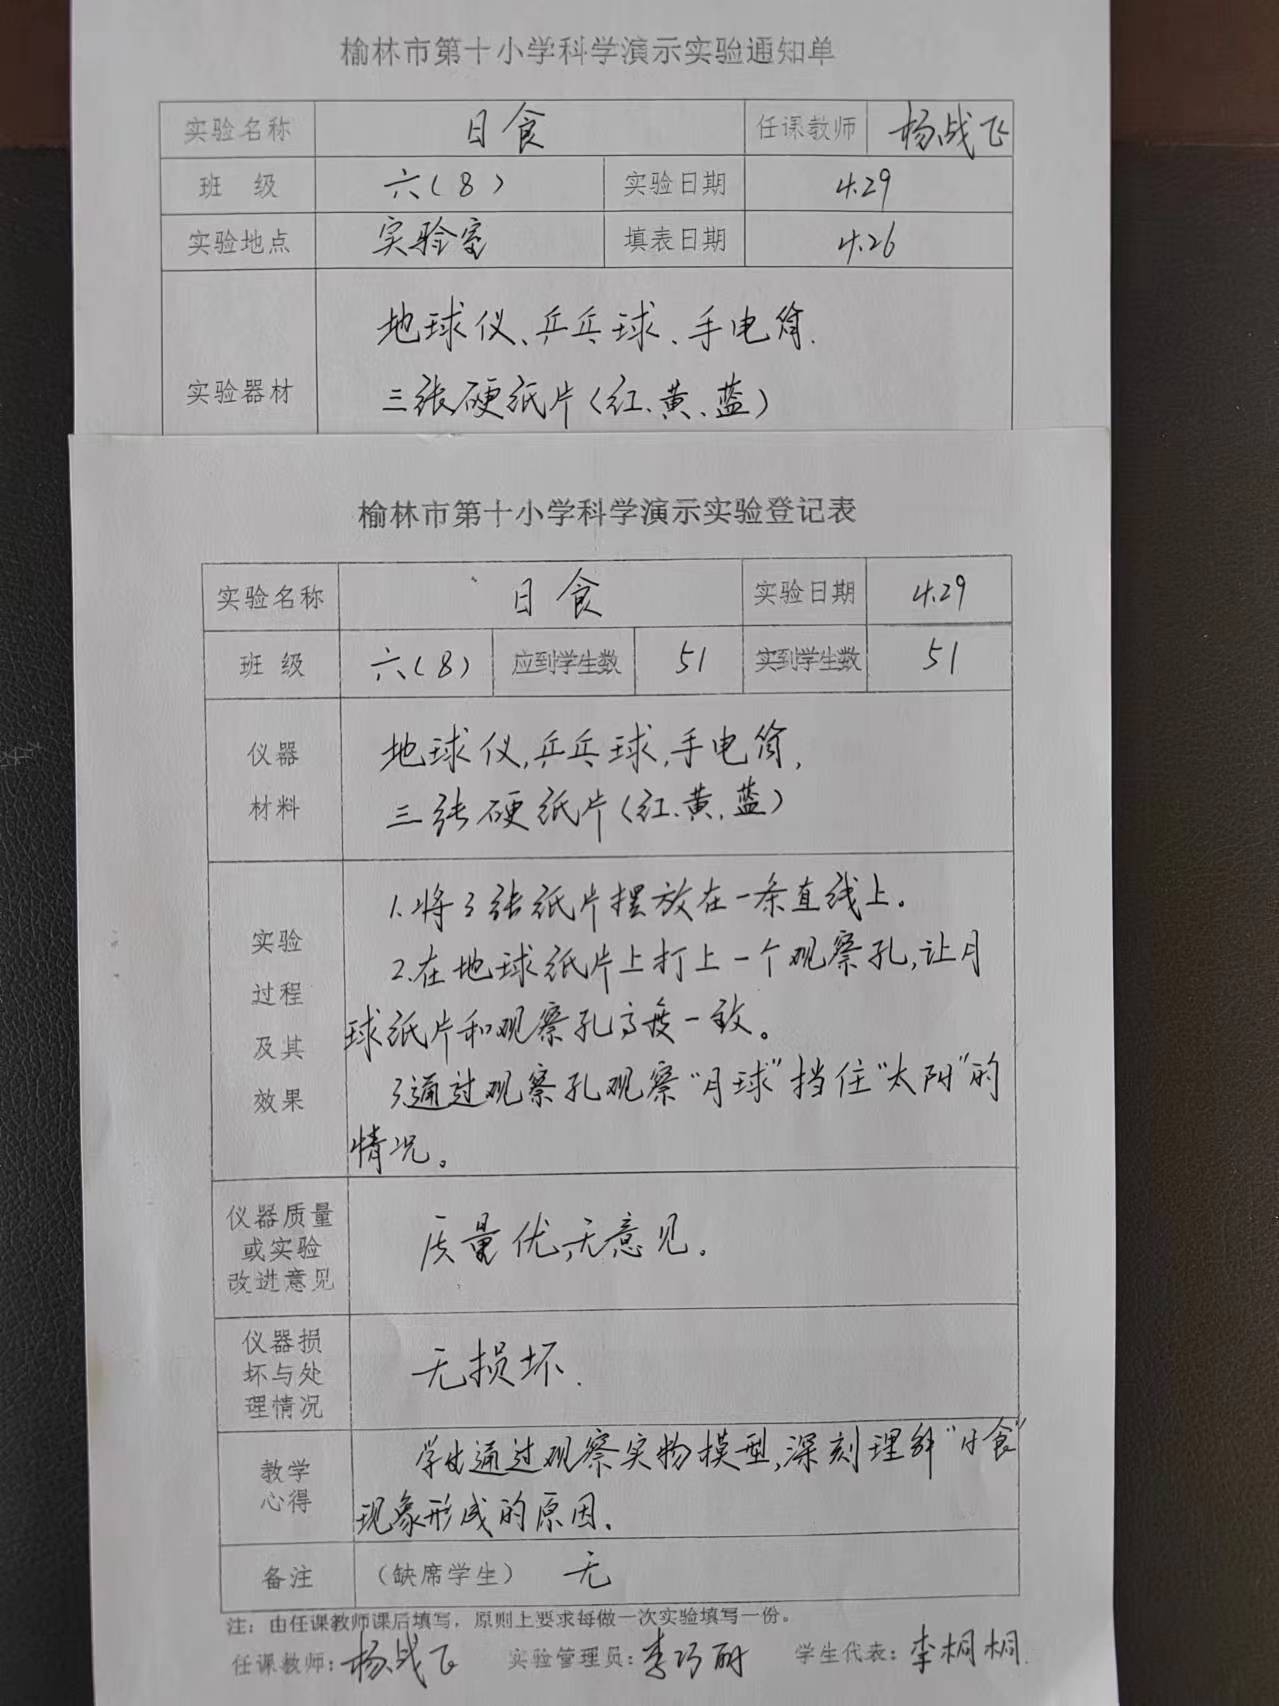 榆林市第十小学科学演示实验通知单
实验名称 日食 任课教师 杨战飞
班 级 六(8) 实验日期 4.29
实验地点 实验室 填表日期 4.26
实验器材 地球仪、乒乓球、手电筒.
三张硬纸片(红、黄、蓝)
榆林市第十小学科学演示实验登记表
实验名称 日食 实验日期 4.29
班 级 六(8) 应到学生数 51 实到学生数 51
仪器
材料
地球仪,乒乓球,手电筒,
三张硬纸片(红、黄、蓝)
实验
过程
及其
效果
1.将3张纸片摆放在一条直线上。
2.在地球纸片上打上一个观察孔,让月
球纸片和观察孔高度一致。
3通过观察孔观察“月球”挡住“太阳”的
情况。
仪器质量
或实验
改进意见
质量优,无意见。
仪器损
坏与处
理情况
无损坏.
教学
心得
学生通过观察实物模型,深刻理解“日食”
现象形成的原因.
备注 (缺席学生) 无
注:由任课教师课后填写,原则上要求每做一次实验填写一份。
任课教师:杨战飞 实验管理员:李巧丽 学生代表:李桐桐.